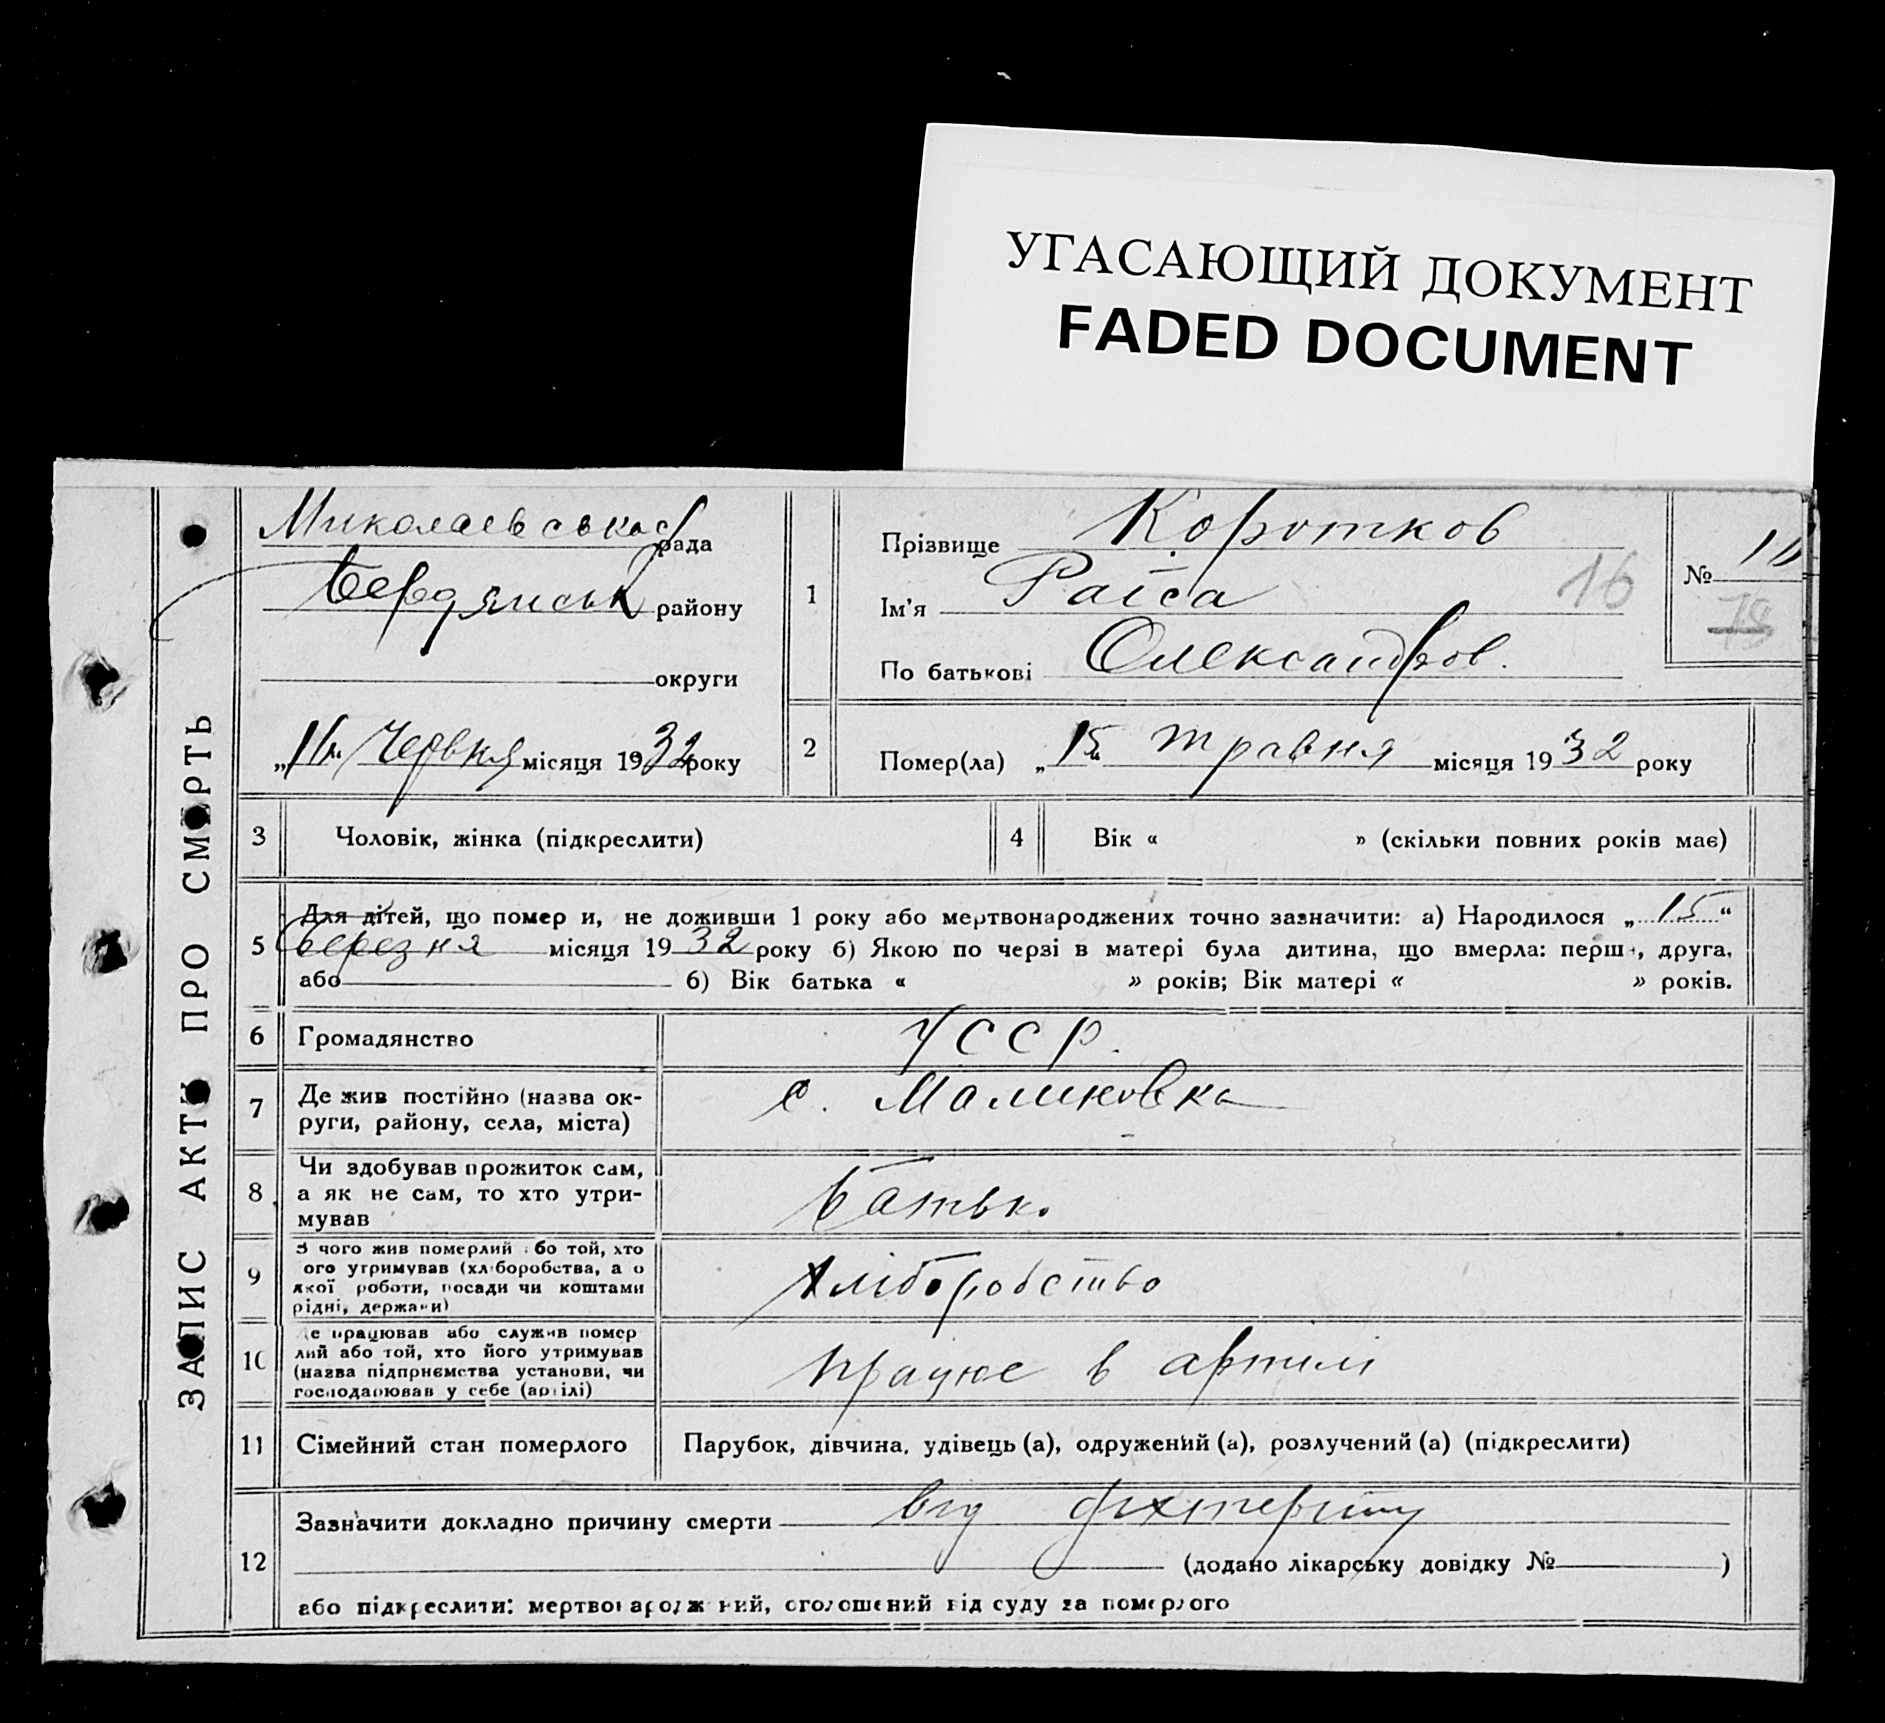 УГАСАЮЩИЙ ДОКУМЕНТ
FADED DOCUMENT
ЗАПИС АКТУ ПРО СМЕРТЬ
Миколаевська рада
Бердянськ району
округи
Червня місяця 1932 року
1
Прізвище Коротков
Ім'я Раїса
16
По батькові Олександров.
№
2
Помер(ла) „15“ травня місяця 1932 року
3 Чоловік, жінка (підкреслити)
4 Вік « » (скільки повних років має)
5 Для дітей, що помер и, не доживши 1 року або мертвонароджених точно зазначити: а) Народилося „15“
Березня місяця 1932 року б) Якою по черзі в матері була дитина, що вмерла: перша, друга,
або б) Вік батька « » років; Вік матері « » років.
6 Громадянство УССР.
7 Де жив постійно (назва ок-
руги, району, села, міста)
с. Малиновка
8 Чи здобував прожиток сам,
а як не сам, то хто утри-
мував
Батьк.
9 З чого жив померлий або той, хто
ого утримував (хліборобства, а о
якої роботи, посади чи коштами
рідні, держави)
Хліборобство
10 е працював або служив помер
лий або той, хто його утримував
(назва підприємства установи, чи
господарював у себе (артілі)
працює в артилі
11 Сімейний стан померлого Парубок, дівчина, удівець (а), одружений (а), розлучений (а) (підкреслити)
12 Зазначити докладно причину смерти від дихтериту
(додано лікарську довідку № )
або підкреслити: мертвонароджений, оголошений від суду за померлого